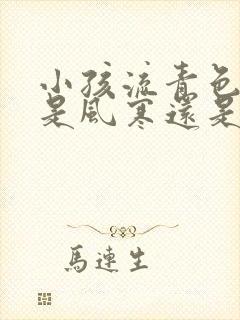 小孩流青色
是風寒還是
馬連生